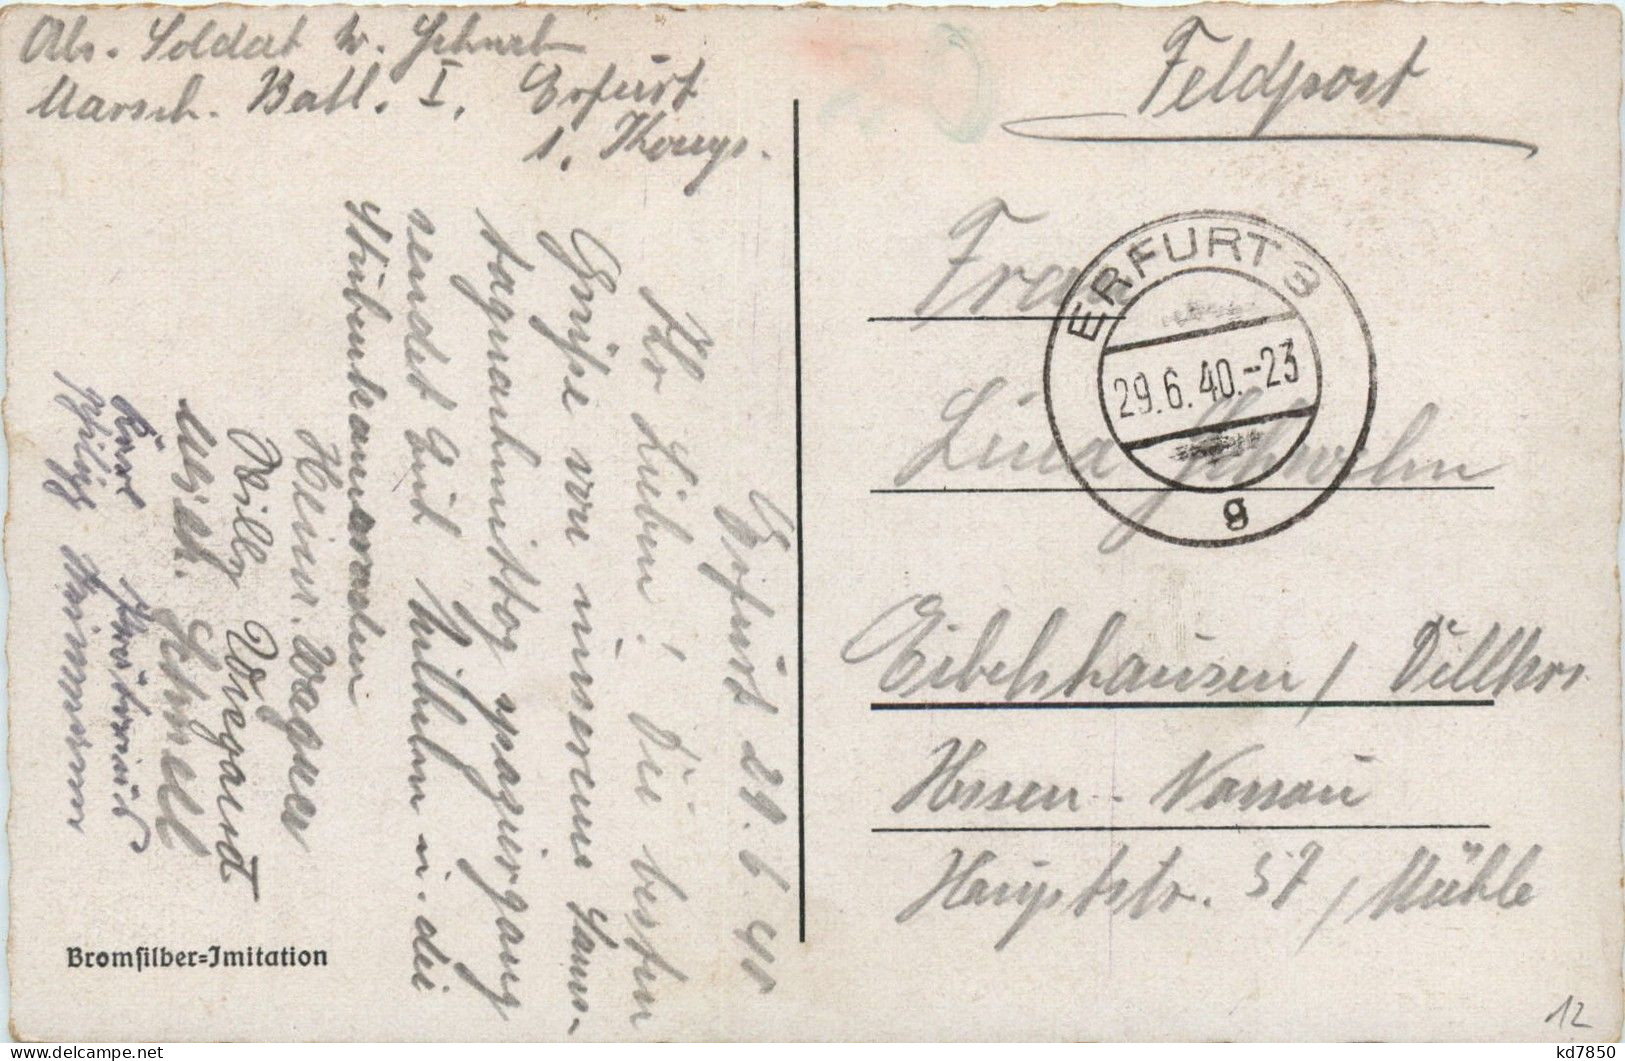 Abs. Soldat W. Schwehn
Marsch. Batl. I. Erfurt
1. Komp.
Feldpost
ERFURT 3
29.6.40.-23
g
Frau
Lina Schwehn
Eibelshausen / Dillkrs.
Hessen - Nassau
Hauptstr. 57 / Mühle
Erfurt 29.6.40
Ihr Lieben! Die besten
Grüße von unserem Sams-
tagnachmittag spaziergang
sendet Euch Wilhelm u. die
Stubenkameraden
Heinr. Wagner
Willy Wiegand
Schnell
Kurt
Bromsilber-Imitation
12
kd7850